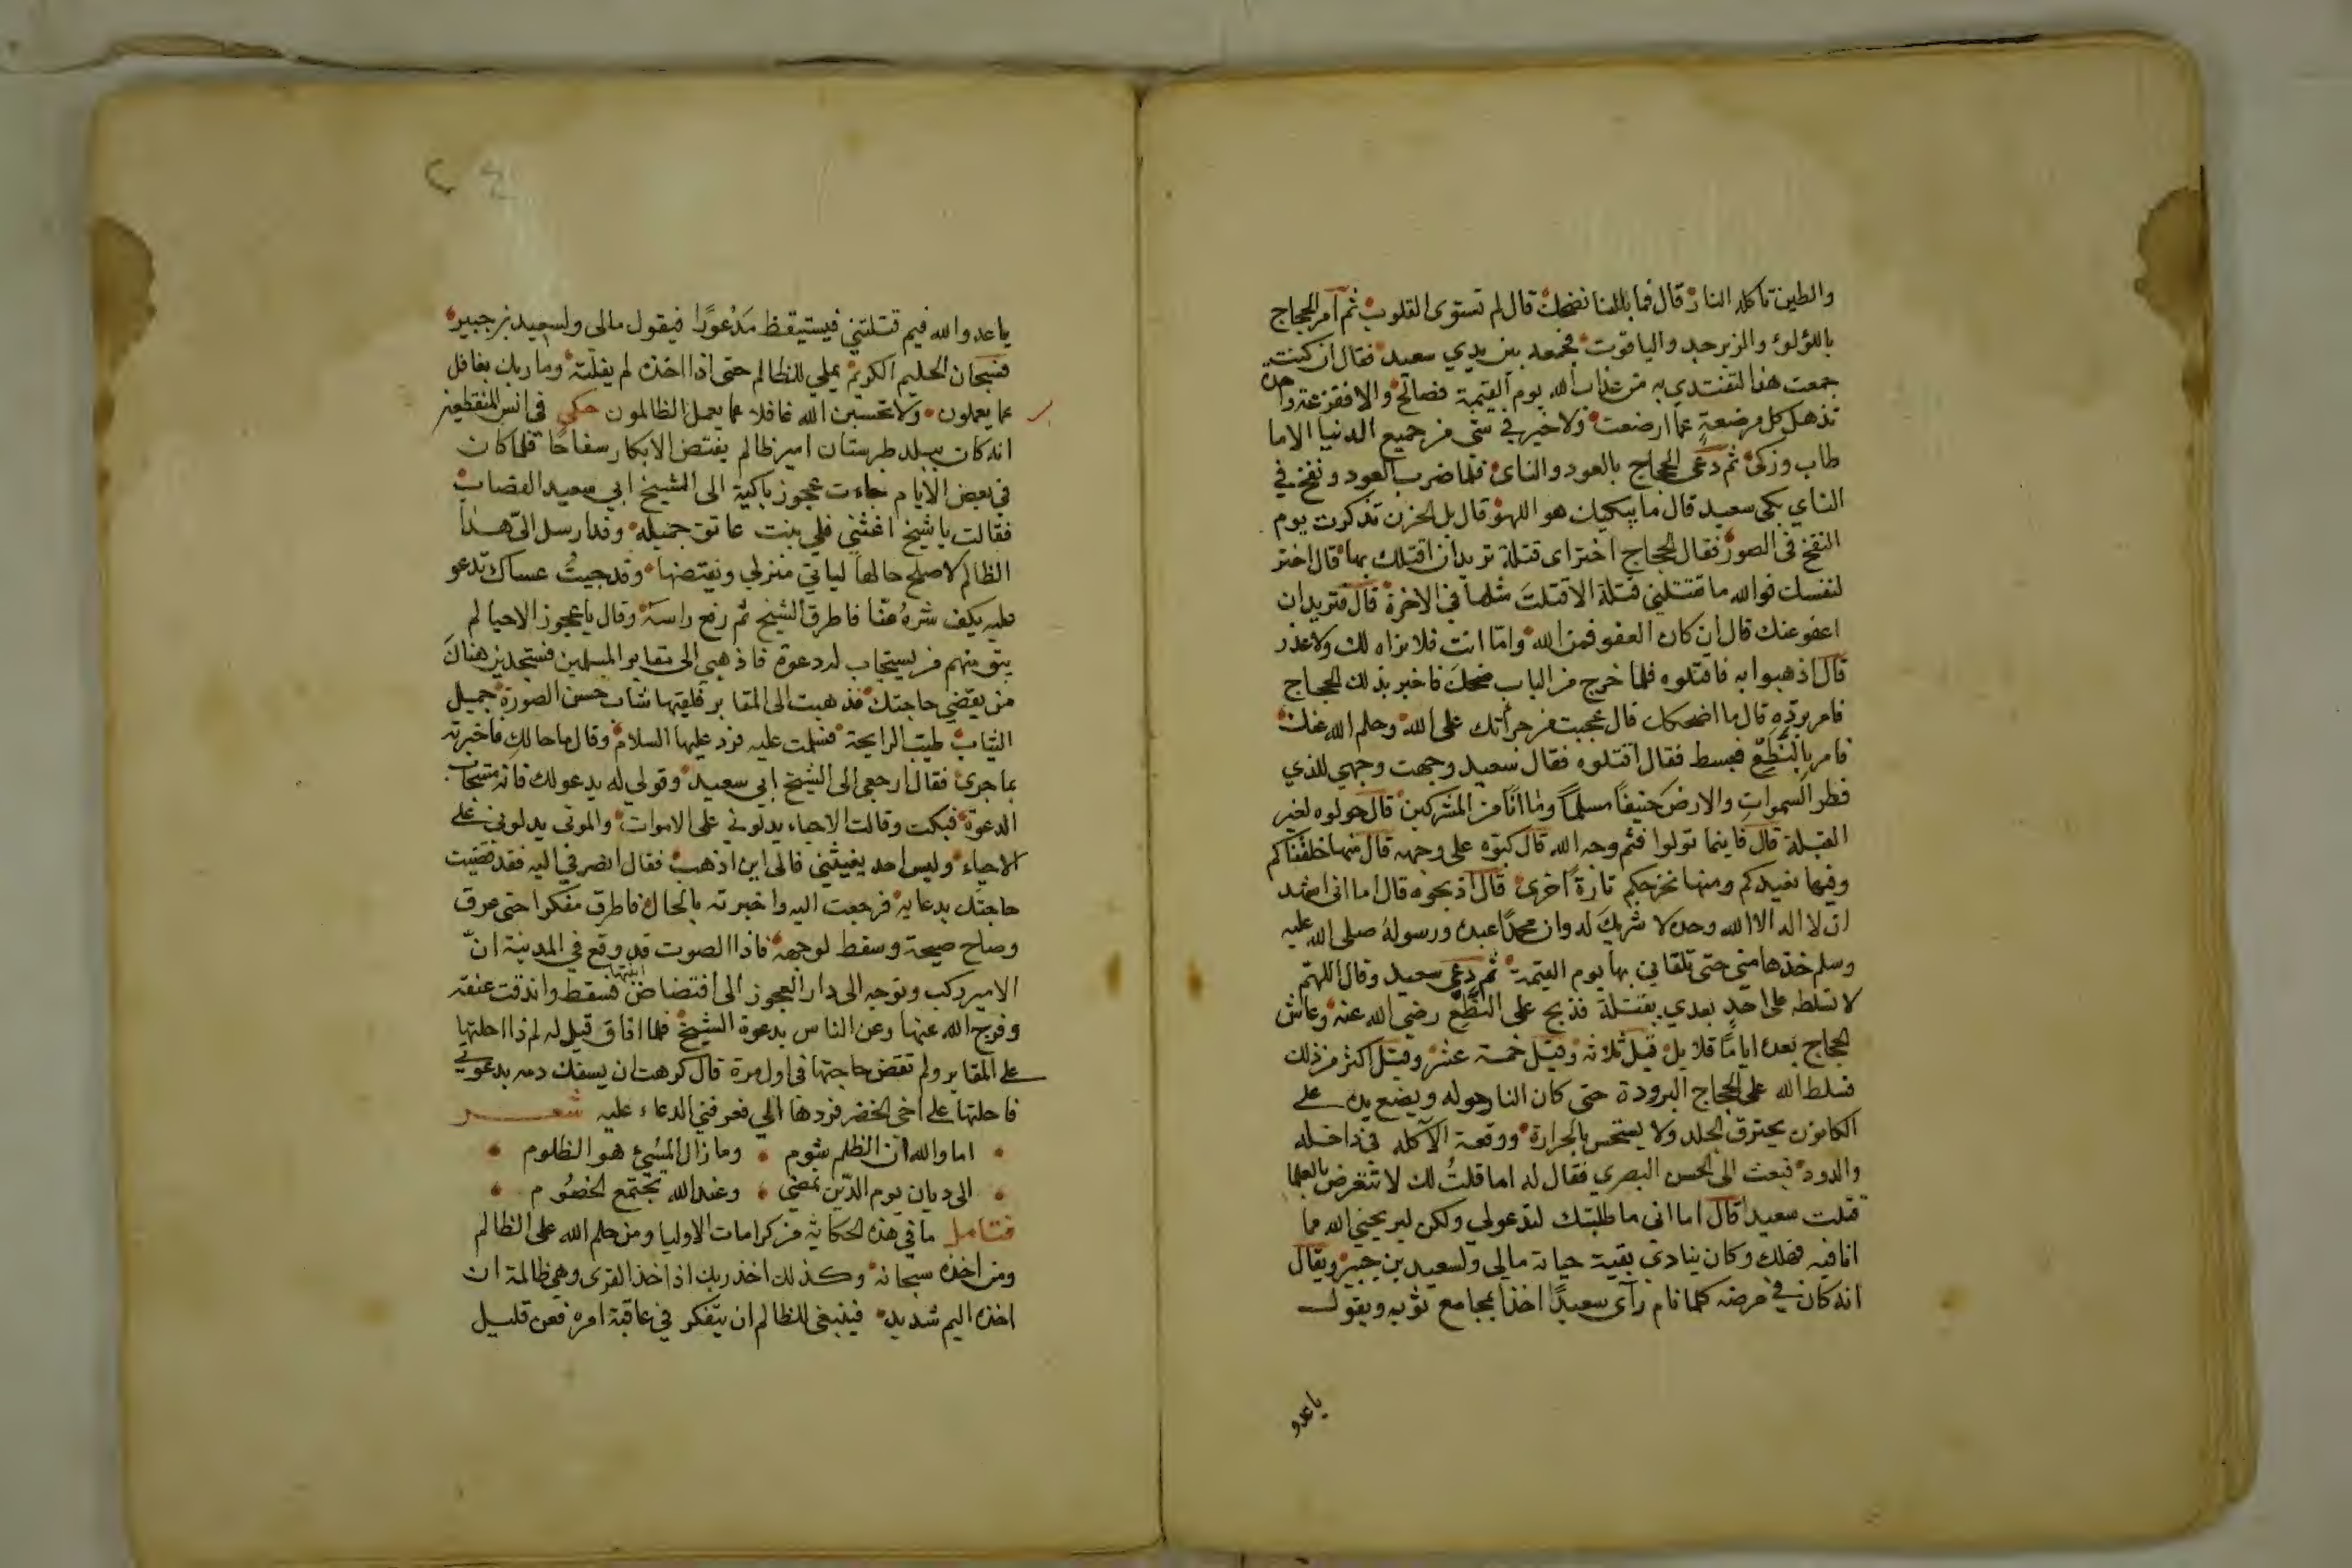 والطين تاكله النار قال فما بالنا نضحك قال لم تستوى القلوب ثم امر الحجاج
باللؤلؤ والزبرجد والياقوت فجمعه بين يدي سعيد فقال ان كنت
جمعت هذا لتفتدي به من عذاب الله يوم القيمة فصالح والا ففزعة واحدة
تذهل كل مرضعة عما ارضعت ولا خير في شي من جميع الدنيا الا ما
طاب وزكى ثم دعى الحجاج بالعود والناى فلما ضرب العود ونفخ في
الناي بكى سعيد قال ما يبكيك هو اللهو قال بل الحزن تذكرت يوم
النفخ في الصور فقال الحجاج اختر اى قتلة تريد ان اقتلك بها قال اختر
لنفسك فوالله ما تقتلني قتلة الا قتلت مثلها في الاخرة قال فتريد ان
اعفو عنك قال ان كان العفو فمن الله واما انت فلا براه لك ولا عذر
قال اذهبوا به فاقتلوه فلما خرج من الباب ضحك فاخبر بذلك الحجاج
فامر بردّه قال ما اضحكك قال عجبت من جرأتك على الله وحلم الله عنك
فامر بالنطع فبسط فقال اقتلوه فقال سعيد وجهت وجهي للذي
فطر السموات والارض حنيفًا مسلمًا وما انا من المشركين قال حولوه لغير
القبلة قال فاينما تولوا فثم وجه الله قال كبّوه على وجهه قال منها خلقناكم
وفيها نعيدكم ومنها نخرجكم تارةً اخرى قال اذبحوه قال اما انى اشهد
ان لا اله الا الله وحده لا شريك له وان محمدًا عبده ورسوله صلى الله عليه
وسلم خذها مني حتى تلقاني بها يوم القيمة ثم دعى سعيد وقال اللهم
لا تسلطه على احد بعدي بقتلة فذبح على النطع رضي الله عنه وعاش
الحجاج بعده اياما قلايل قيل ثلاثه وقيل خمسة عشر وقيل اكثر من ذلك
فسلط الله على الحجاج البرودة حتى كان النار حوله ويضع يده على
الكانون يحترق الجلد ولا يستحس بالحرارة ووقعت الآكله في داخله
والدود فبعث الى الحسن البصري فقال له اما قلتُ لك لا تتعرض بالعلما
قتلت سعيدا قال اما انى ما طلبتك لتدعو لي ولكن ليريحني الله مما
انا فيه فهلك وكان ينادي بقية حياته مالي ولسعيد بن جبير ويقال
انه كان في مرضه كلما نام رآى سعيدًا اخذا بمجامع ثوبه ويقول
يا عدو
يا عدو الله فيم قتلتني فيستيقظ مذعورًا فيقول مالى ولسعيد بن جبير
فسبحان الحليم الكريم يملي للظالم حتى اذا اخذه لم يفلته وما ربك بغافل
عما يعملون ولا تحسبن الله غافلا عما يعمل الظالمون حكى في انس المنقطعين
انه كان ببلد طبرستان امير ظالم يفتض الابكار سفاحًا فلما كان
في بعض الايام جاءت عجوز باكية الى الشيخ ابي سعيد القصاب
فقالت يا شيخ اغثني فلي بنت عاتق جميله وقد ارسل الىّ هذا
الظالم لاصلح حالها لياتي منزلي ويفتضها وقد جيتُ عساك تدعو
عليه يكف شره عنا فاطرق الشيخ ثم رفع راسه وقال يا عجوز الاحيا لم
يبق منهم من يستجاب له دعوة فاذهبي الى مقابر المسلمين فستجدين هناك
من يقضي حاجتك فذهبت الى المقابر فلقيها شاب حسن الصورة جميل
الثياب طيب الرايحة فسلمت عليه فرد عليها السلام وقال ما حالكِ فاخبرته
بما جرى فقال ارجعي الى الشيخ ابي سعيد وقولي له يدعو لك فانه مستجاب
الدعوة فبكت وقالت الاحياء يدلوني على الاموات والموتى يدلوني على
الاحياء وليس احد يغيثني فالى اين اذهب فقال انصرفي اليه فقد قضيت
حاجتك بدعايه فرجعت اليه واخبرته بالحال فاطرق مفكرا حتى عرق
وصاح صيحة وسقط لوجهه فاذا الصوت قد وقع في المدينة انّ
الامير ركب وتوجه الى دار العجوز الى افتضاض ابنتها فسقط واندقت عنقه
وفرج الله عنها وعن الناس بدعوة الشيخ فلما افاق قيل له لم ذا احلتها
على المقابر ولم تقض حاجتها في اول مرة قال كرهت ان يسفك دمه بدعوتي
فاحلتها على اخى الخضر فردها الي فعرفني الدعاء عليه شعر
اما والله ان الظلم شوم وما زال المسئ هو الظلوم
الى ديان يوم الدّين نمضي وعند الله تجتمع الخصوم
فتامل ما في هذه الحكاية من كرامات الاوليا ومن حلم الله على الظالم
ومن اخذه سبحانه وكذلك اخذ ربك اذا اخذ القرى وهي ظالمة ان
اخذه اليم شديد فينبغي للظالم ان يتفكر في عاقبة امره فعن قليل